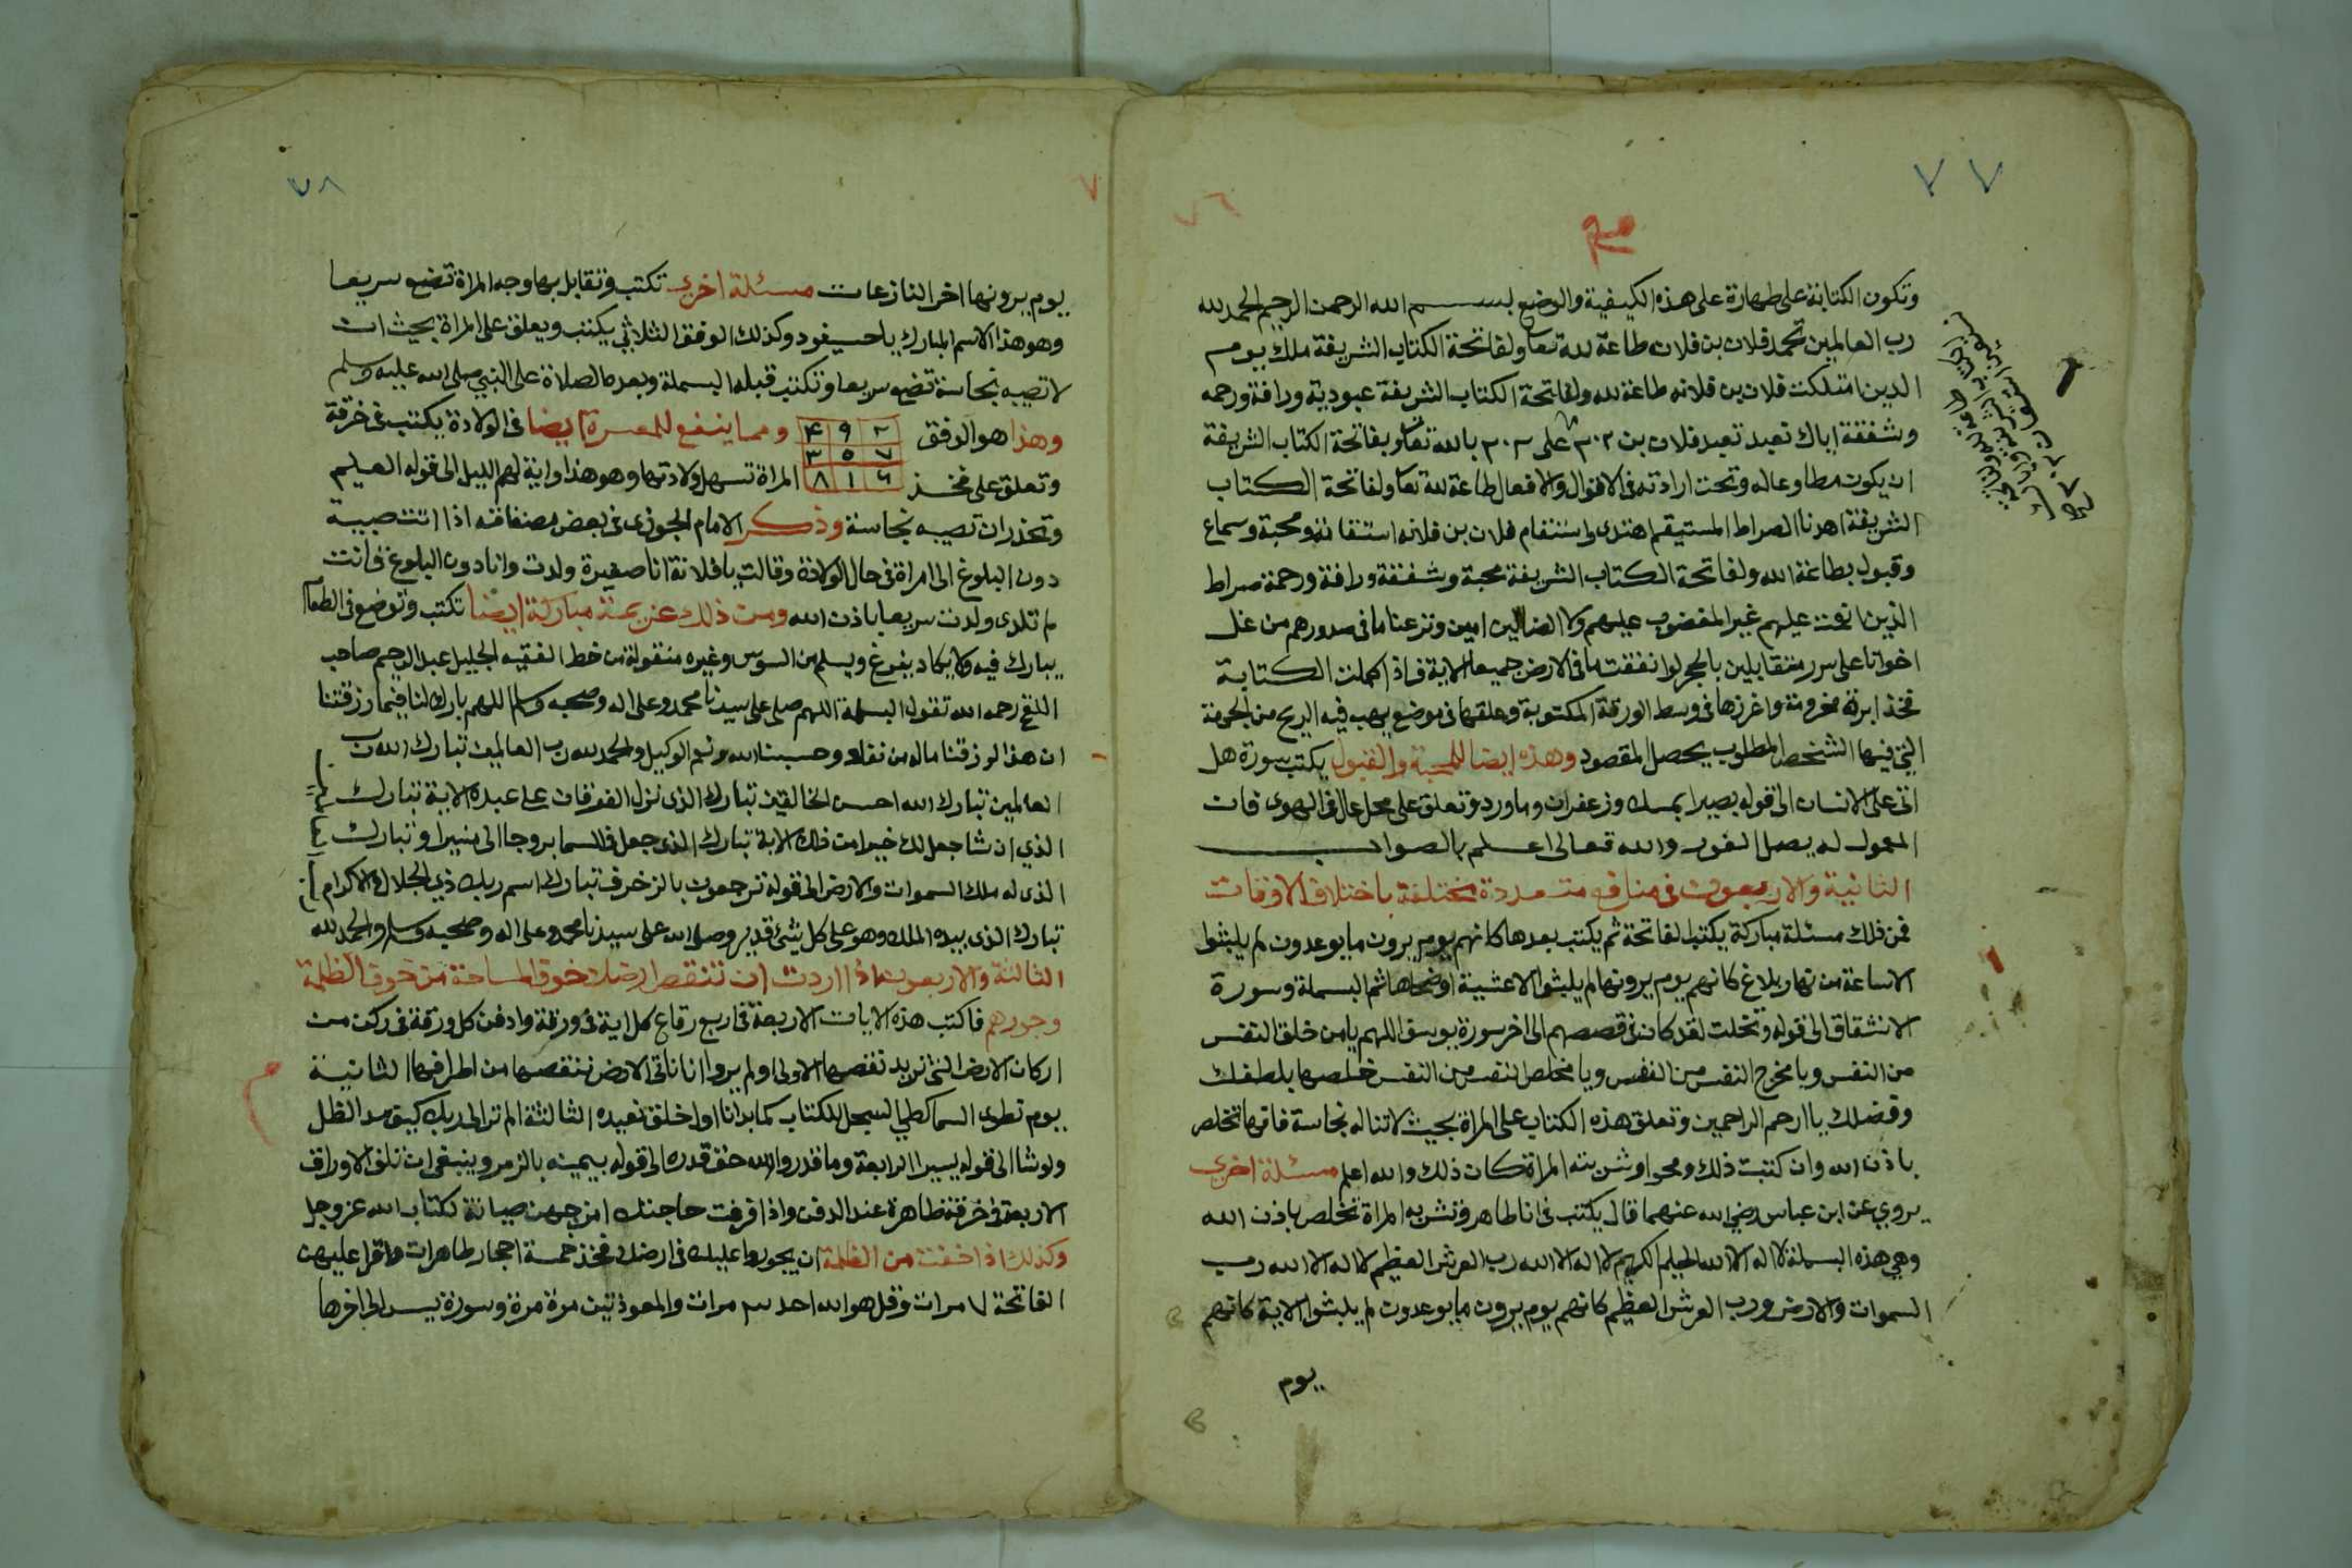 ٧٧
وتكون الكتابة على طهارة على هذه الكيفية والوضع بسم الله الرحمن الرحيم الحمد لله
رب العالمين تحمد فلان بن فلان طاعة لله تعا ولفاتحة الكتاب الشريفة ملك يوم
الدين امتلكت فلان بن فلانه طاعة لله ولفاتحة الكتاب الشريفة عبودية ورافة ورحمه
وشفقة اياك نعبد تعبد فلان بن على بالله تعا وبفاتحة الكتاب الشريفة
ان يكون مطاوعا له وتحت ارادته في الاقوال والافعال طاعة لله تعا ولفاتحة الكتاب
الشريفة اهدنا الصراط المستقيم هتدى واستقام فلان بن فلانه استقامة ومحبة وسماع
وقبول بطاعة الله ولفاتحة الكتاب الشريفة محبة وشفقة ورافة ورحمة صراط
الذين انعمت عليهم غير المغضوب عليهم ولا الضالين امين ونزعنا ما في صدورهم من غل
اخوانا على سرر متقابلين بالحجر لو انفقت ما في الارض جميعا الاية فاذ اكملت الكتابة
فخذ ابرة مخرومة واغرزها في وسط الورقة المكتوبة وعلقها في موضع يهب فيه الريح من الجهة
التي فيها الشخص المطلوب يحصل المقصود وهذه ايضا للمحبة والقبول يكتب سورة هل
اتى على الانسان الى قوله بصيرا بمسك وزعفران وماورد وتعلق على محل عال في الهوى فان
المعمول له يصل الفور والله تعالى اعلم بالصواب
الثانية والاربعون في منافع متعددة مختلفة باختلاف الاوقات
فمن ذلك مسئلة مباركة يكتب الفاتحة ثم يكتب بعدها كانهم يوم يرون ما يوعدون لم يلبثوا
الا ساعة من نهار بلاغ كانهم يوم يرونها لم يلبثوا الا عشية او ضحاها ثم البسملة وسورة
الانشقاق الى قوله وتخلت لقد كان في قصصهم الى اخر سورة يوسف اللهم يا من خلق النفس
من النفس ويا مخرج النفس من النفس ويا مخلص النفس من النفس خلصها بلطفك
وفضلك يا ارحم الراحمين وتعلق هذه الكتاب على المراة بحيث لا تناله نجاسة فانها تخلص
باذن الله وان كتبت ذلك ومحي وشربته المراة كان ذلك والله اعلم مسئلة اخرى
يروي عن ابن عباس رضي الله عنهما قال يكتب في انا طاهر وتشربه المراة تخلص باذن الله
وهي هذه البسملة لا اله الا الله الحليم الكريم لا اله الا الله رب العرش العظيم لا اله الا الله رب
السموات والارض ورب العرش العظيم كانهم يوم يرون ما يوعدون لم يلبثوا الاية كانهم
يوم
٧٨
يوم يرونها اخر النازعات مسئلة اخرى تكتب وتقابل بها وجه المراة تضع سريعا
وهو هذا الاسم المبارك وكذلك الوفق الثلاثي يكتب ويعلق على المراة بحيث ان
لا تصيبه نجاسة تضع سريعا وتكتب قبله البسملة وبعده الصلاة على النبي صلى الله عليه وسلم
وهذا هو الوفق ٢ ٩ ۴ ومما ينفع للمعسرة ايضا في الولادة يكتب في خرقة
٧ ٥ ٣
وتعلق على فخذ ٦ ١ ٨ المراة تسهل ولادتها وهو هذا واية لهم الليل الى قوله العليم
وتحذر ان تصيبه نجاسة وذكر الامام الجوزى في بعض مصنفاته اذا اتت صبية
دون البلوغ الى امراة في حال الولادة وقالت يا فلانة انا صغيرة ولدت وانا دون البلوغ فانت
لم تلدى ولدت سريعا باذن الله ومن ذلك عزيمة مباركة ايضا تكتب وتوضع في الطعام
يبارك فيه ولا يكاد يفرغ ويسلم من السوس وغيره منقولة من خط الفقيه الجليل عبد الرحيم صاحب
رحمه الله تقول البسملة اللهم صلى على سيدنا محمد وعلى اله وصحبه وسلم اللهم بارك لنا فيما رزقتنا
ان هذا لرزقنا ماله من نفاد وحسبنا الله ونعم الوكيل والحمد لله رب العالمين تبارك الله رب
العالمين تبارك الله احسن الخالقين تبارك الذي نزل الفرقان على عبده الاية تبارك
الذي ان شا جعل لك خيرا من ذلك الاية تبارك الذي جعل في السما بروجا الى منيرا وتبارك
الذى له ملك السموات والارض الى قوله ترجعون بالزخرف تبارك اسم ربك ذي الجلال والاكرام
تبارك الذى بيده الملك وهو على كل شئ قدير وصلى الله على سيدنا محمد وعلى اله وصحبه وسلم والحمد لله
الثالثة والاربعون اذا اردت ان تنقص ارضك خوف المساحة من خوف الظلمة
وجورهم فاكتب هذه الايات الاربعة في اربع رقاع كل اية في ورقة وادفن كل ورقة في ركن من
اركان الارض التي تريد نقصها الاولى اولم يروا انا ناتي الارض ننقصها من اطرافها الثانية
يوم نطوى السما كطي السجل للكتاب كما بدانا اول خلق نعيده الثالثة الم تر الى ربك كيف مد الظل
ولو شا الى قوله يسيرا الرابعة وما قدروا الله حق قدره الى قوله بيمينه بالزمر وينبغي ان تلف الاوراق
الاربعة في خرقة طاهرة عند الدفن واذا فرغت حاجتك اخرجهن صيانة لكتاب الله عز وجل
وكذلك اذا خفت من الظلمة ان يجوروا عليك في ارضك فخذ خمسة احجار طاهرات واقرا عليهن
الفاتحة ٧ مرات وقل هو الله احد مرات والمعوذتين مرة مرة وسورة يس الى اخرها